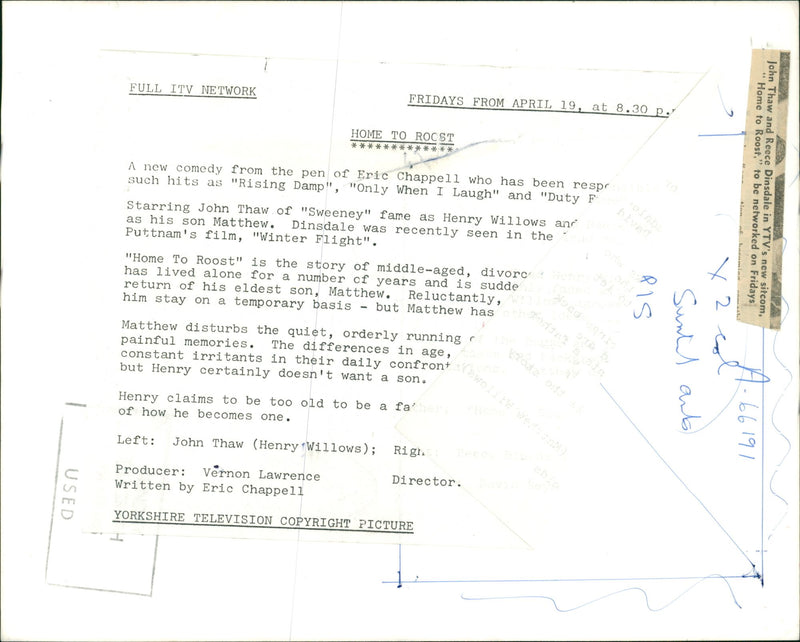 FULL ITV NETWORK
FRIDAYS FROM APRIL 19, at 8.30 p.
HOME TO ROOST
*************
A new comedy from the pen of Eric Chappell who has been resp
such hits as "Rising Damp", "Only When I Laugh" and "Duty F
Starring John Thaw of "Sweeney" fame as Henry Willows and
as his son Matthew. Dinsdale was recently seen in the
Puttnam's film, "Winter Flight".
"Home To Roost" is the story of middle-aged, divorc
has lived alone for a number of years and is sudde
return of his eldest son, Matthew. Reluctantly,
him stay on a temporary basis - but Matthew has
Matthew disturbs the quiet, orderly running
painful memories. The differences in age,
constant irritants in their daily confront
but Henry certainly doesn't want a son.
Henry claims to be too old to be a fa
of how he becomes one.
Left: John Thaw (Henry Willows); Righ
Producer: Vernon Lawrence
Director.
Written by Eric Chappell
YORKSHIRE TELEVISION COPYRIGHT PICTURE
USED
John Thaw and Reece Dinsdale in YTV's new sitcom,
"Home to Roost," to be networked on Fridays
A.66191
X 2 col
R15